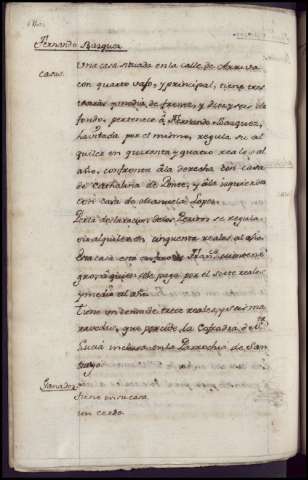 Fernando Bazquez
casas
Una casa situada en la calle de Arriva
con quarto vajo, y principal, tiene tres
varas y media de frente, y diez y seis de
fondo, pertenece á Fernando Bazquez,
havitada por el mismo, regula su al
quiler en quarenta y quatro reales al
año, confronta á la derecha con casa
de Cathalina de Ponte, y á la izquierda
con casa de Manuela Lopez
Por la declaracion de los Peritos se regula
su alquiler en cinquenta reales al año
Esta casa
se le paga por el siete reales
y medio al año
Tiene un de trece reales, y seis ma
ravedis, que percibe la Cofradia de Sta
Lucia inclusa en la Parrochia de San
tiago
Ganados
tiene en su casa
un cerdo